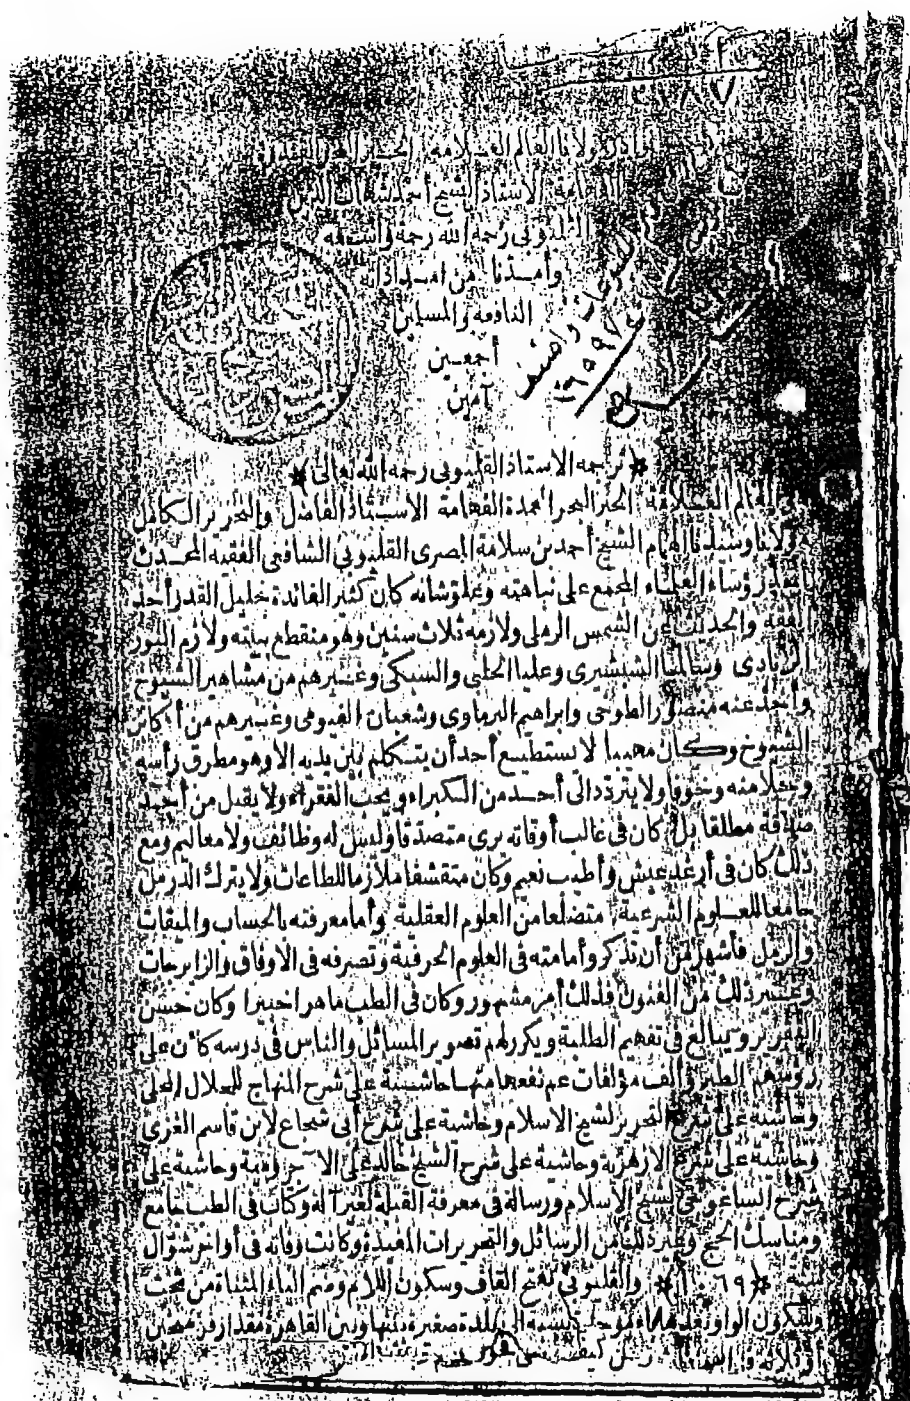 ٢٠٨٧
نوادر مولانا العالم العلامة الحبر البحر
الفهامة الاستاذ الشيخ أحمد شهاب الدين
القليوبى رحمه الله رحمة واسعة
وأمدنا من امداداته
النافعه والمسلين
أجمعين
آمين
﴿ ترجمه الاستاذ القليوبى رحمه الله تعالى ﴾
هو العالم العلامة الحبر البحر العمدة الفهامة الاستاذ الفاضل والنحرير الكامل
مولانا وسيدنا الهمام الشيخ أحمد بن سلامة المصرى القليوبى الشافعى الفقيه المحدث
أحد رؤساء العلماء المجمع على نباهته وعلوشانه كان كثير الفائدة جليل القدر أخذ
الفقه والحديث عن الشمس الرملى ولازمه ثلاث سنين وهو منقطع ببيته ولازم النور
الزيادى وسالما الشبشيرى وعليا الحلبى والسبكى وغيرهم من مشاهير الشيوخ
وأخذ عنه منصور الطوخى وابراهيم البرماوى وشعبان الفيومى وغيرهم من أكابر
الشيوخ وكان مهيبا لا يستطيع أحد أن يتكلم بين يديه الا وهو مطرق رأسه
وجلا منه وخوفا ولا يتردد الى أحد من الكبراء ويحب الفقراء ولا يقبل من أحد
صدقة مطلقا بل كان فى غالب أوقاته يرى متصدقا وليس له وظائف ولا معاليم ومع
ذلك كان فى أرغد عيش وأطيب نعيم وكان متقشفا ملازما للطاعات ولا يترك الدرس
جامعا للعلوم الشرعية متضلعا من العلوم العقلية وأما معرفته بالحساب والميقات
والرمل فأشهر من أن تذكر وأمامته فى العلوم الحرفية وتصرفه فى الاوفاق والزايرجات
وغير ذلك من الفنون فذلك أمر مشهور وكان فى الطب ماهرا خبيرا وكان حسن
التقرير ويبالغ فى تفهيم الطلبة ويكرر لهم تصوير المسائل والناس فى درسه كأن على
رؤسهم الطير وألف مؤلفات عم نفعها منها حاشية على شرح المنهاج للجلال المحلى
وحاشية على شرح التحرير لشيخ الاسلام وحاشية على شرح أبى شجاع لابن قاسم الغزى
وحاشية على شرح الازهرية وحاشية على شرح الشيخ خالد على الآجرومية وحاشية على
شرح ايساغوجى لشيخ الاسلام ورسالة فى معرفة القبلة بغير آلة وكتاب فى الطب جامع
ومناسك الحج وغير ذلك من الرسائل والتحريرات المفيدة وكانت وفاته فى أواخر شوال
سنة ﴿ ١٠٦٩ ﴾ والقليوبى بفتح القاف وسكون اللام وضم الياء المثناة من تحت
وسكون الواو وبعدها باء موحدة نسبة الى بلدة صغيرة بينها وبين القاهرة مقدار فرسخين
أو ثلاثة